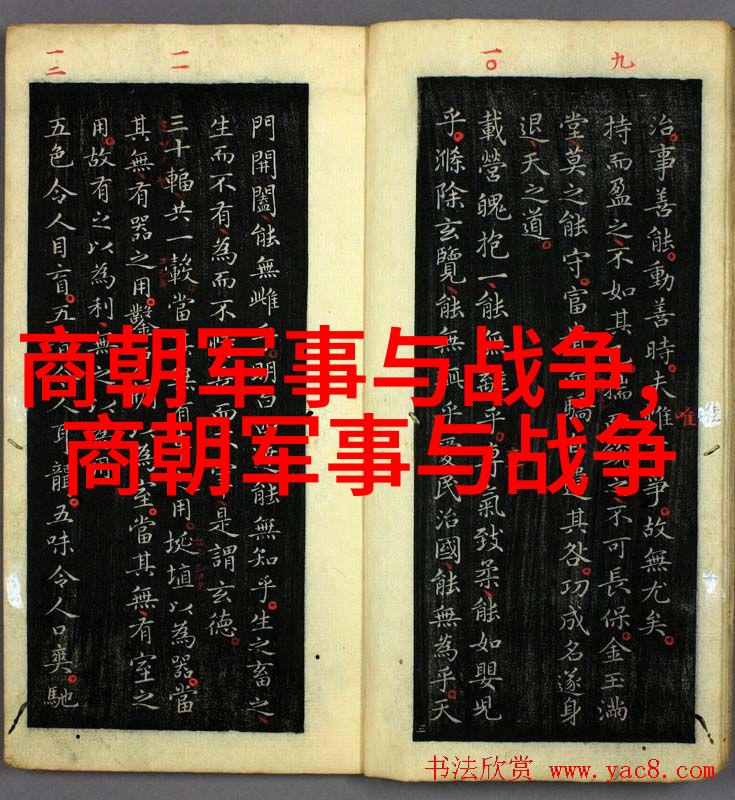 九
一〇
一一
一二
治。事善能。動善時。夫惟爭。故無尤矣。
唯
持而盈之不如其揣不可長保。金玉滿
堂莫之能守。富遺其咎。功成名遂身
退天之道。
載營魄抱一、能無離乎。專氣致柔、能如嬰兒
乎。滌除玄覽、能無疵乎。愛民治國、能無為乎。天
門開闔、能無雌乎。明白能無知乎。生之畜之、
生而不有、為而不恃而是謂玄德。
三十輻、共一轂。當用。埏埴以為器。當
其無、有器之用。鑿為室。當其無、有室之
用。故有之以為利、無之
五色令人目盲。五人耳聾。五味令人口爽。馳
商朝军事与战争,
商朝军事与战争
书法欣赏 www.yac8.com